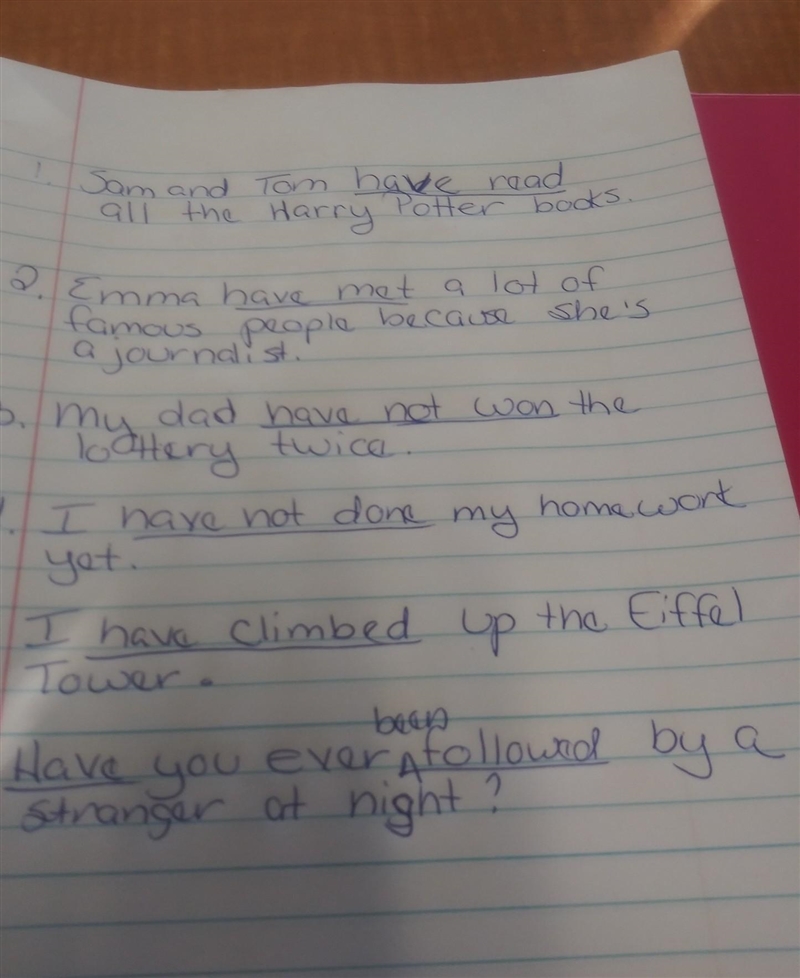 1. Sam and Tom have read
all the Harry Potter books.
2. Emma have met a lot of
famous people because she's
a journalist.
3. My dad have not won the
lottery twice.
4. I have not done my homework
yet.
I have climbed up the Eiffel
Tower.
been
Have you ever followed by a
stranger at night?